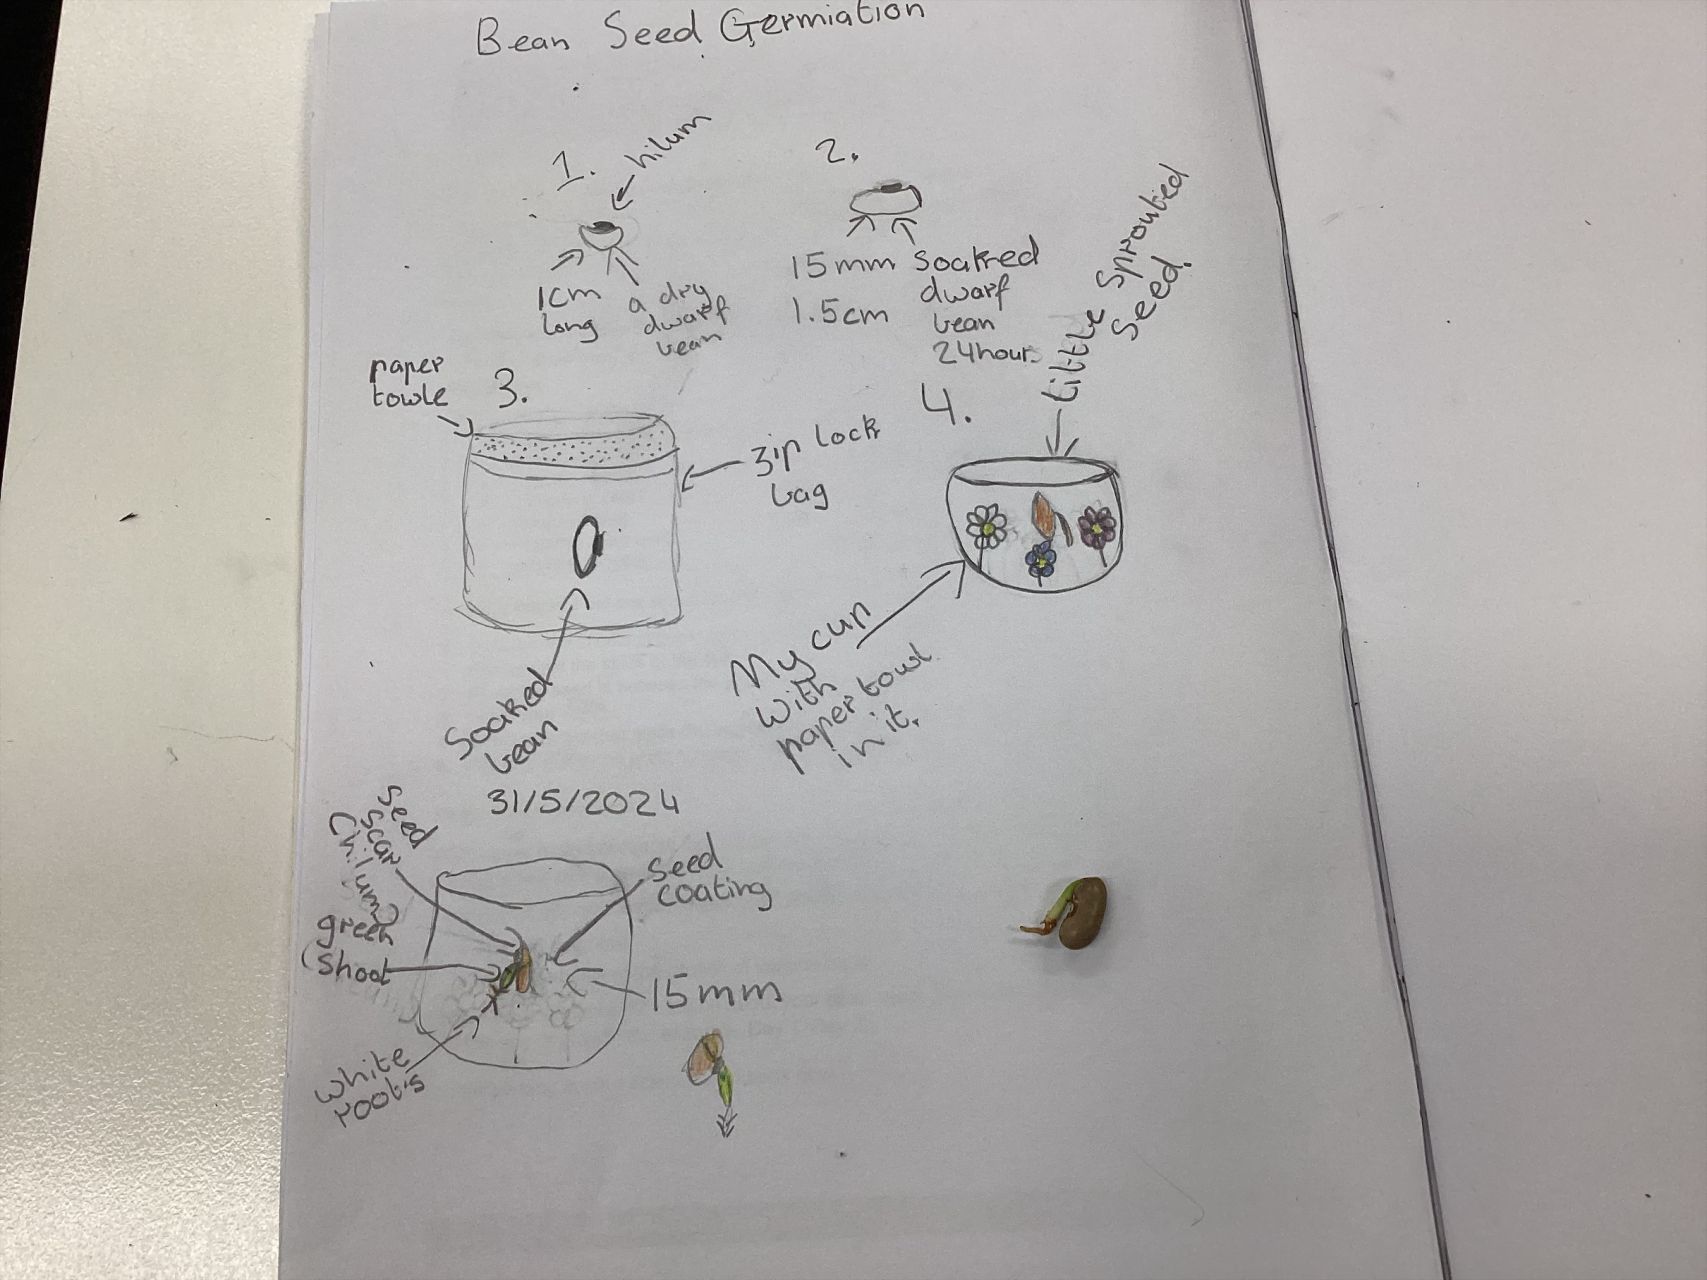 Bean Seed Germiation
1.
hilum
1cm
long
a dry
dwarf
bean
2.
15mm
1.5cm
Soaked
dwarf
bean
24hour
3.
paper
towle
zip lock
bag
Soaked
bean
4.
little sprouted
seed.
My cup
with
paper towl
in it.
31/5/2024
Seed
scar
(hilum)
green
shoot
white
roots
seed
coating
15mm